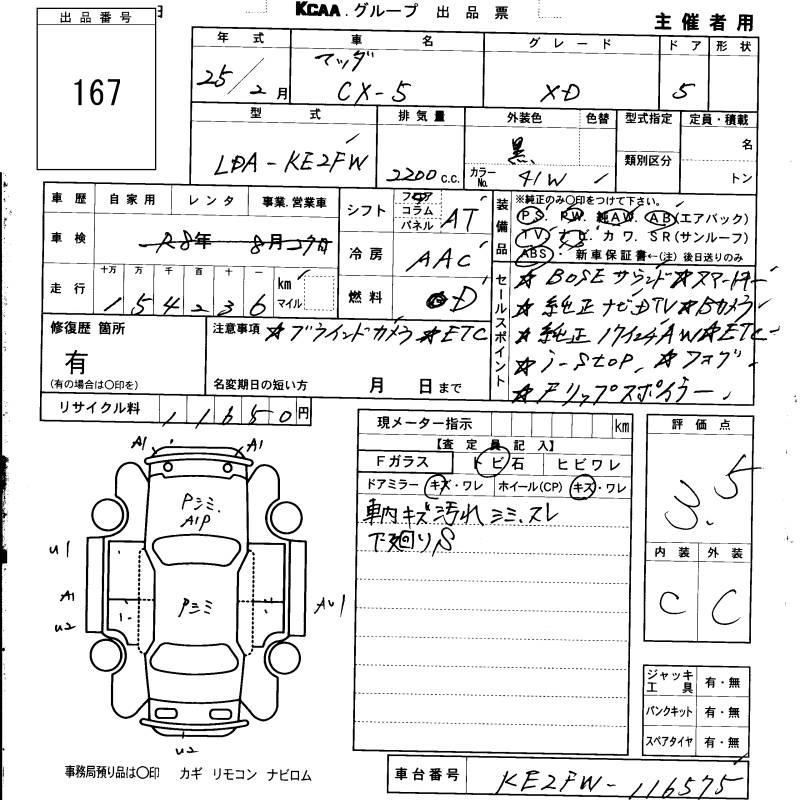 KCAA.グループ 出品票
主催者用
出品番号
167
年式 車名 グレード ドア 形状
25/2月 マツダ CX-5 XD 5
型式 排気量 外装色 色替 型式指定 定員・積載
LDA-KE2FW 2200c.c. 黒 カラーNo. 41W 類別区分 名 トン
車歴 自家用 レンタ 事業.営業車
車検 R8年 8月27日
走行 十万 万 千 百 十 一 km マイル
154236
シフト フロア コラム パネル AT
冷房 AAC
燃料 D
装備品 ※純正のみ○印をつけて下さい。
PS. PW. 純AW. AB(エアバック)
TV. ナビ. カワ. SR(サンルーフ)
ABS. 新車保証書←(注)後日送りのみ
セールスポイント
☆BOSEサウンド☆スマートキー
☆純正ナビDTV☆Bカメラ
☆純正17インチAW☆ETC
☆i-stop. ☆フォグ
☆Fリップスポイラー
修復歴 箇所
有
(有の場合は○印を)
注意事項 ☆ブラインドカメラ ☆ETC
名変期日の短い方 月 日まで
リサイクル料 11650円
現メーター指示 km
【査定員記入】
Fガラス トビ石 ヒビワレ
ドアミラー キズ・ワレ ホイール(CP) キズ・ワレ
車内キズ汚れシミ、スレ
下廻りS
評価点
3.5
内装 外装
C C
ジャッキ工具 有・無
パンクキット 有・無
スペアタイヤ 有・無
A1 A1
Pシミ.
A1P
U1
Pシミ
A1
U2
AU1
U2
事務局預り品は○印 カギ リモコン ナビロム
車台番号 KE2FW-116575